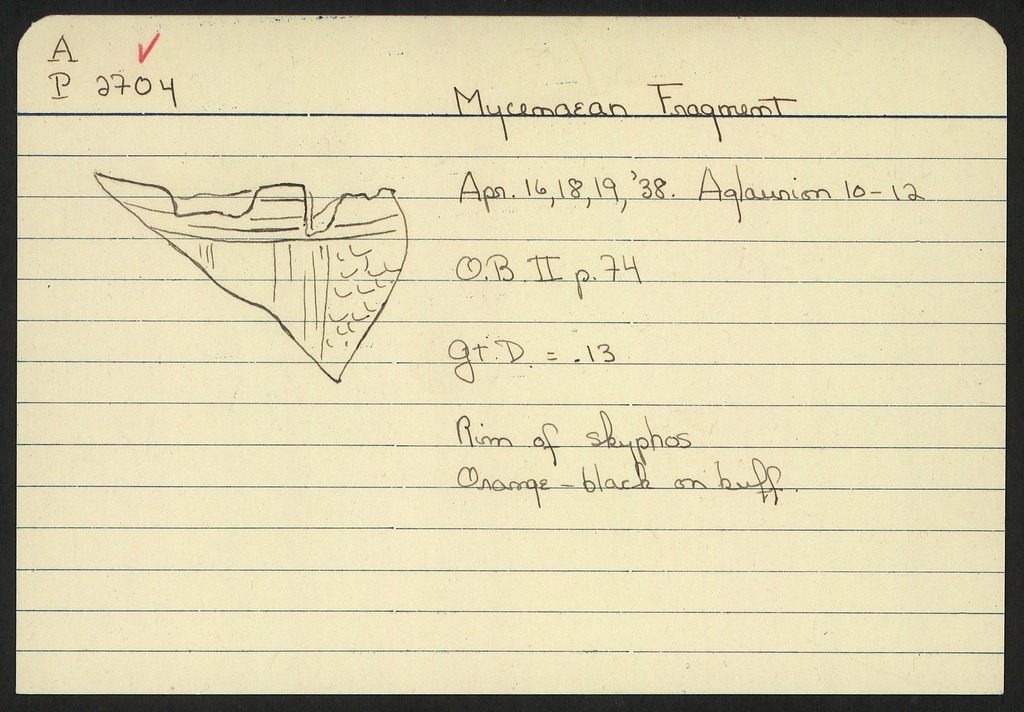 A ✓
P 2704
Mycenaean Fragment
Apr. 16,18,19,'38. Aglaurion 10-12
O.B. II p.74
gt.D. = .13
Rim of skyphos
Orange-black on buff.